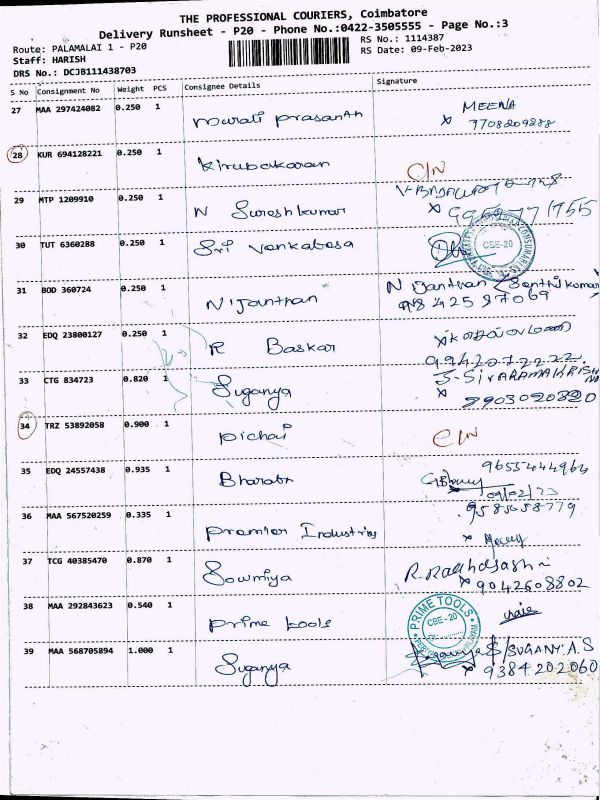 THE PROFESSIONAL COURIERS, Coimbatore
Delivery Runsheet - P20 - Phone No.:0422-3505555 - Page No.:3
Route: PALAMALAI 1 - P20
RS No.: 1114387
Staff: HARISH
RS Date: 09-Feb-2023
DRS No.: DCJB111438703
S No Consignment No Weight PCS Consignee Details Signature
27 MAA 297424082 0.250 1 murali prasanth MEENA
x 7708209288
28 KUR 694128221 0.250 1 Kirubakaran
29 MTP 1209910 0.250 1 N Sureshkumar
30 TUT 6360288 0.250 1 Sri Venkabasa
CBE-20
31 BOD 360724 0.250 1 N'janthan N Janthan
9842597069
32 EDQ 23800127 0.250 1 R Baskar
33 CTG 834723 0.820 1 Suganya
34 TRZ 53892058 0.900 1 pichai
35 EDQ 24557438 0.935 1 Bharath 9655444964
09/02/23
36 MAA 567520259 0.335 1 premier Industries
37 TCG 40385470 0.870 1 Sowmiya
x 9042608802
38 MAA 292843623 0.540 1 prime tools PRIME TOOLS
CBE - 20
39 MAA 568705894 1.000 1 Suganya SUGANY.A.S
x 9384202060